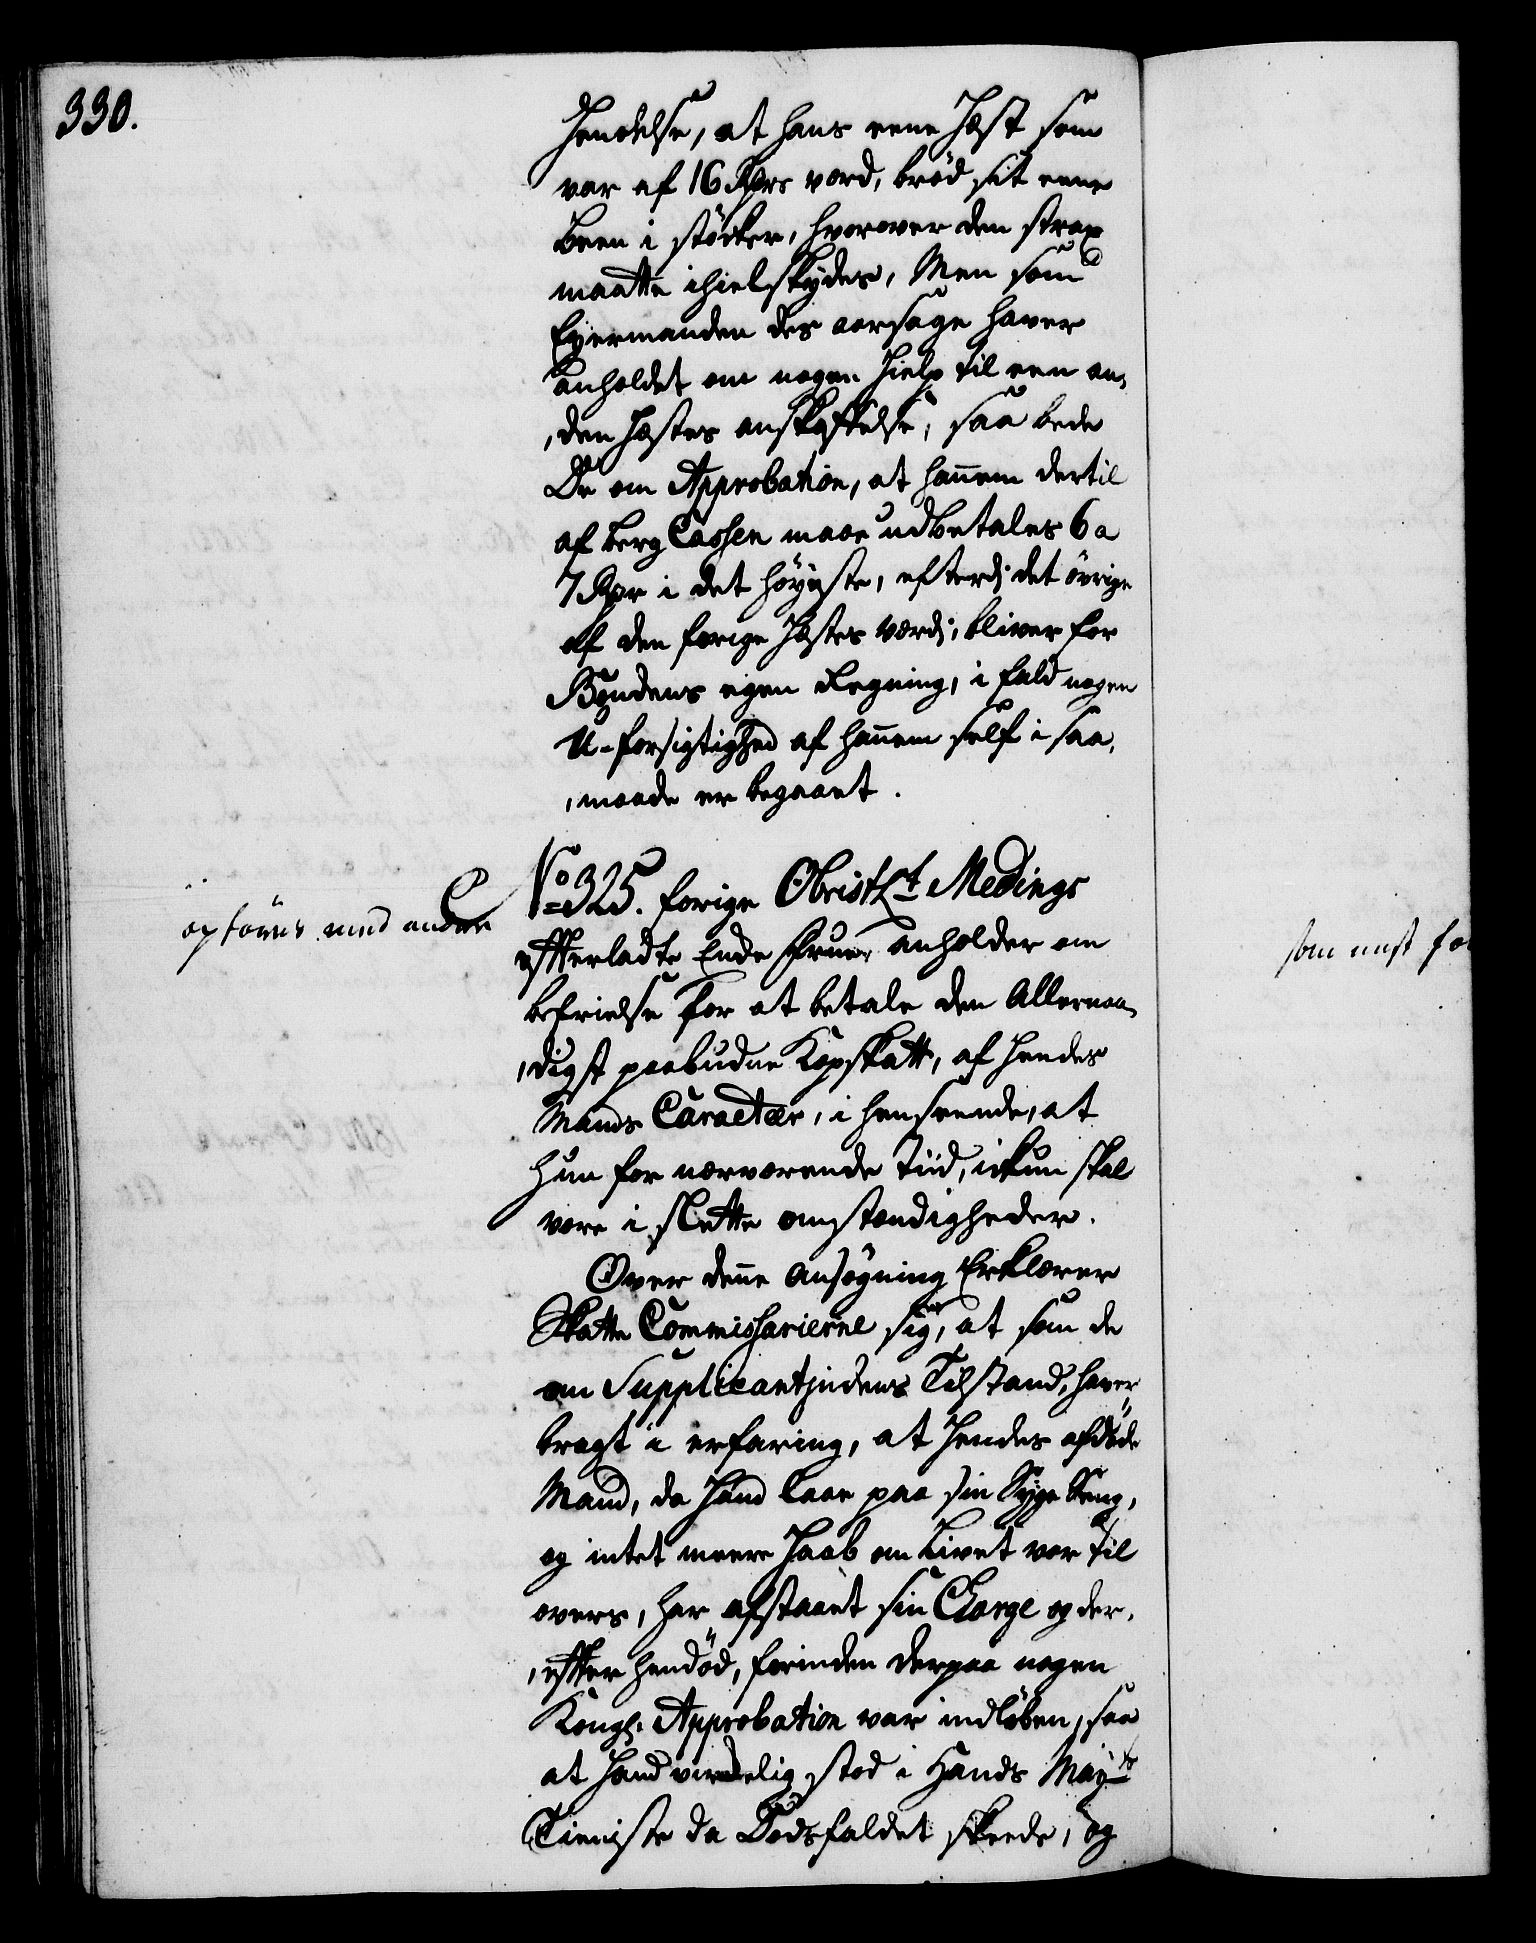 330.
Hendelse, at hans eene Hæst som
var af 16 Rdrs værd, brød sit eene
Been i støcker, hvorover den strax
maatte ihielskydes, Men som
Eyermanden des aarsage haver
anholdet om nogen Hielp til een an-
den Hæstes anskaffelse, saa bede
De om Approbation, at hannem dertil
af berg Cassen maae udbetales 6 a
7 Rdr i det høyeste, efterdj det øvrige
af den forige Hæstes værdj, bliver for
Bondens egen Regning, i fald nogen
U-forsigtighed af hannem self i saa-
maade er begaaet.
No 325. forige Obristlt Medings
efterladte Encke Frue, anholder om
befrielse for at betale den Allernaa-
digst paabudne Kopskatt, af hendes
Mands Caracter, i henseende, at
hun for nærværende Tiid, ickun skal
være i slette omstændigheder.
opføres med andre
Over denne Ansøgning Erklærer
Skatte Commissarierne sig, at som de
om Supplicantindens Tilstand, haver
bragt i erfaring, at Hendes afdøde
Mand, da Hand laae paa sin Syge Seng,
og intet meere Haab om Livet var til
overs, har afstaaet sin Charge og der-
efter hendød, forinden derpaa nogen
Kongl. Approbation var indløben, saa
at Hand virkelig stod i Hands May-ts
Tieniste da Dødsfaldet skeede, og
som mist fo